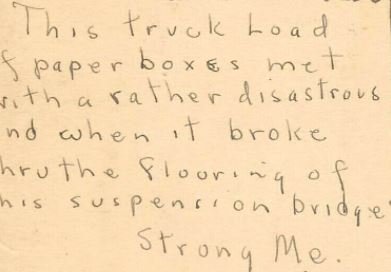 This truck load
f paper boxes met
with a rather disastrous
nd when it broke
hru the flooring of
his suspension bridge
Strong Me.